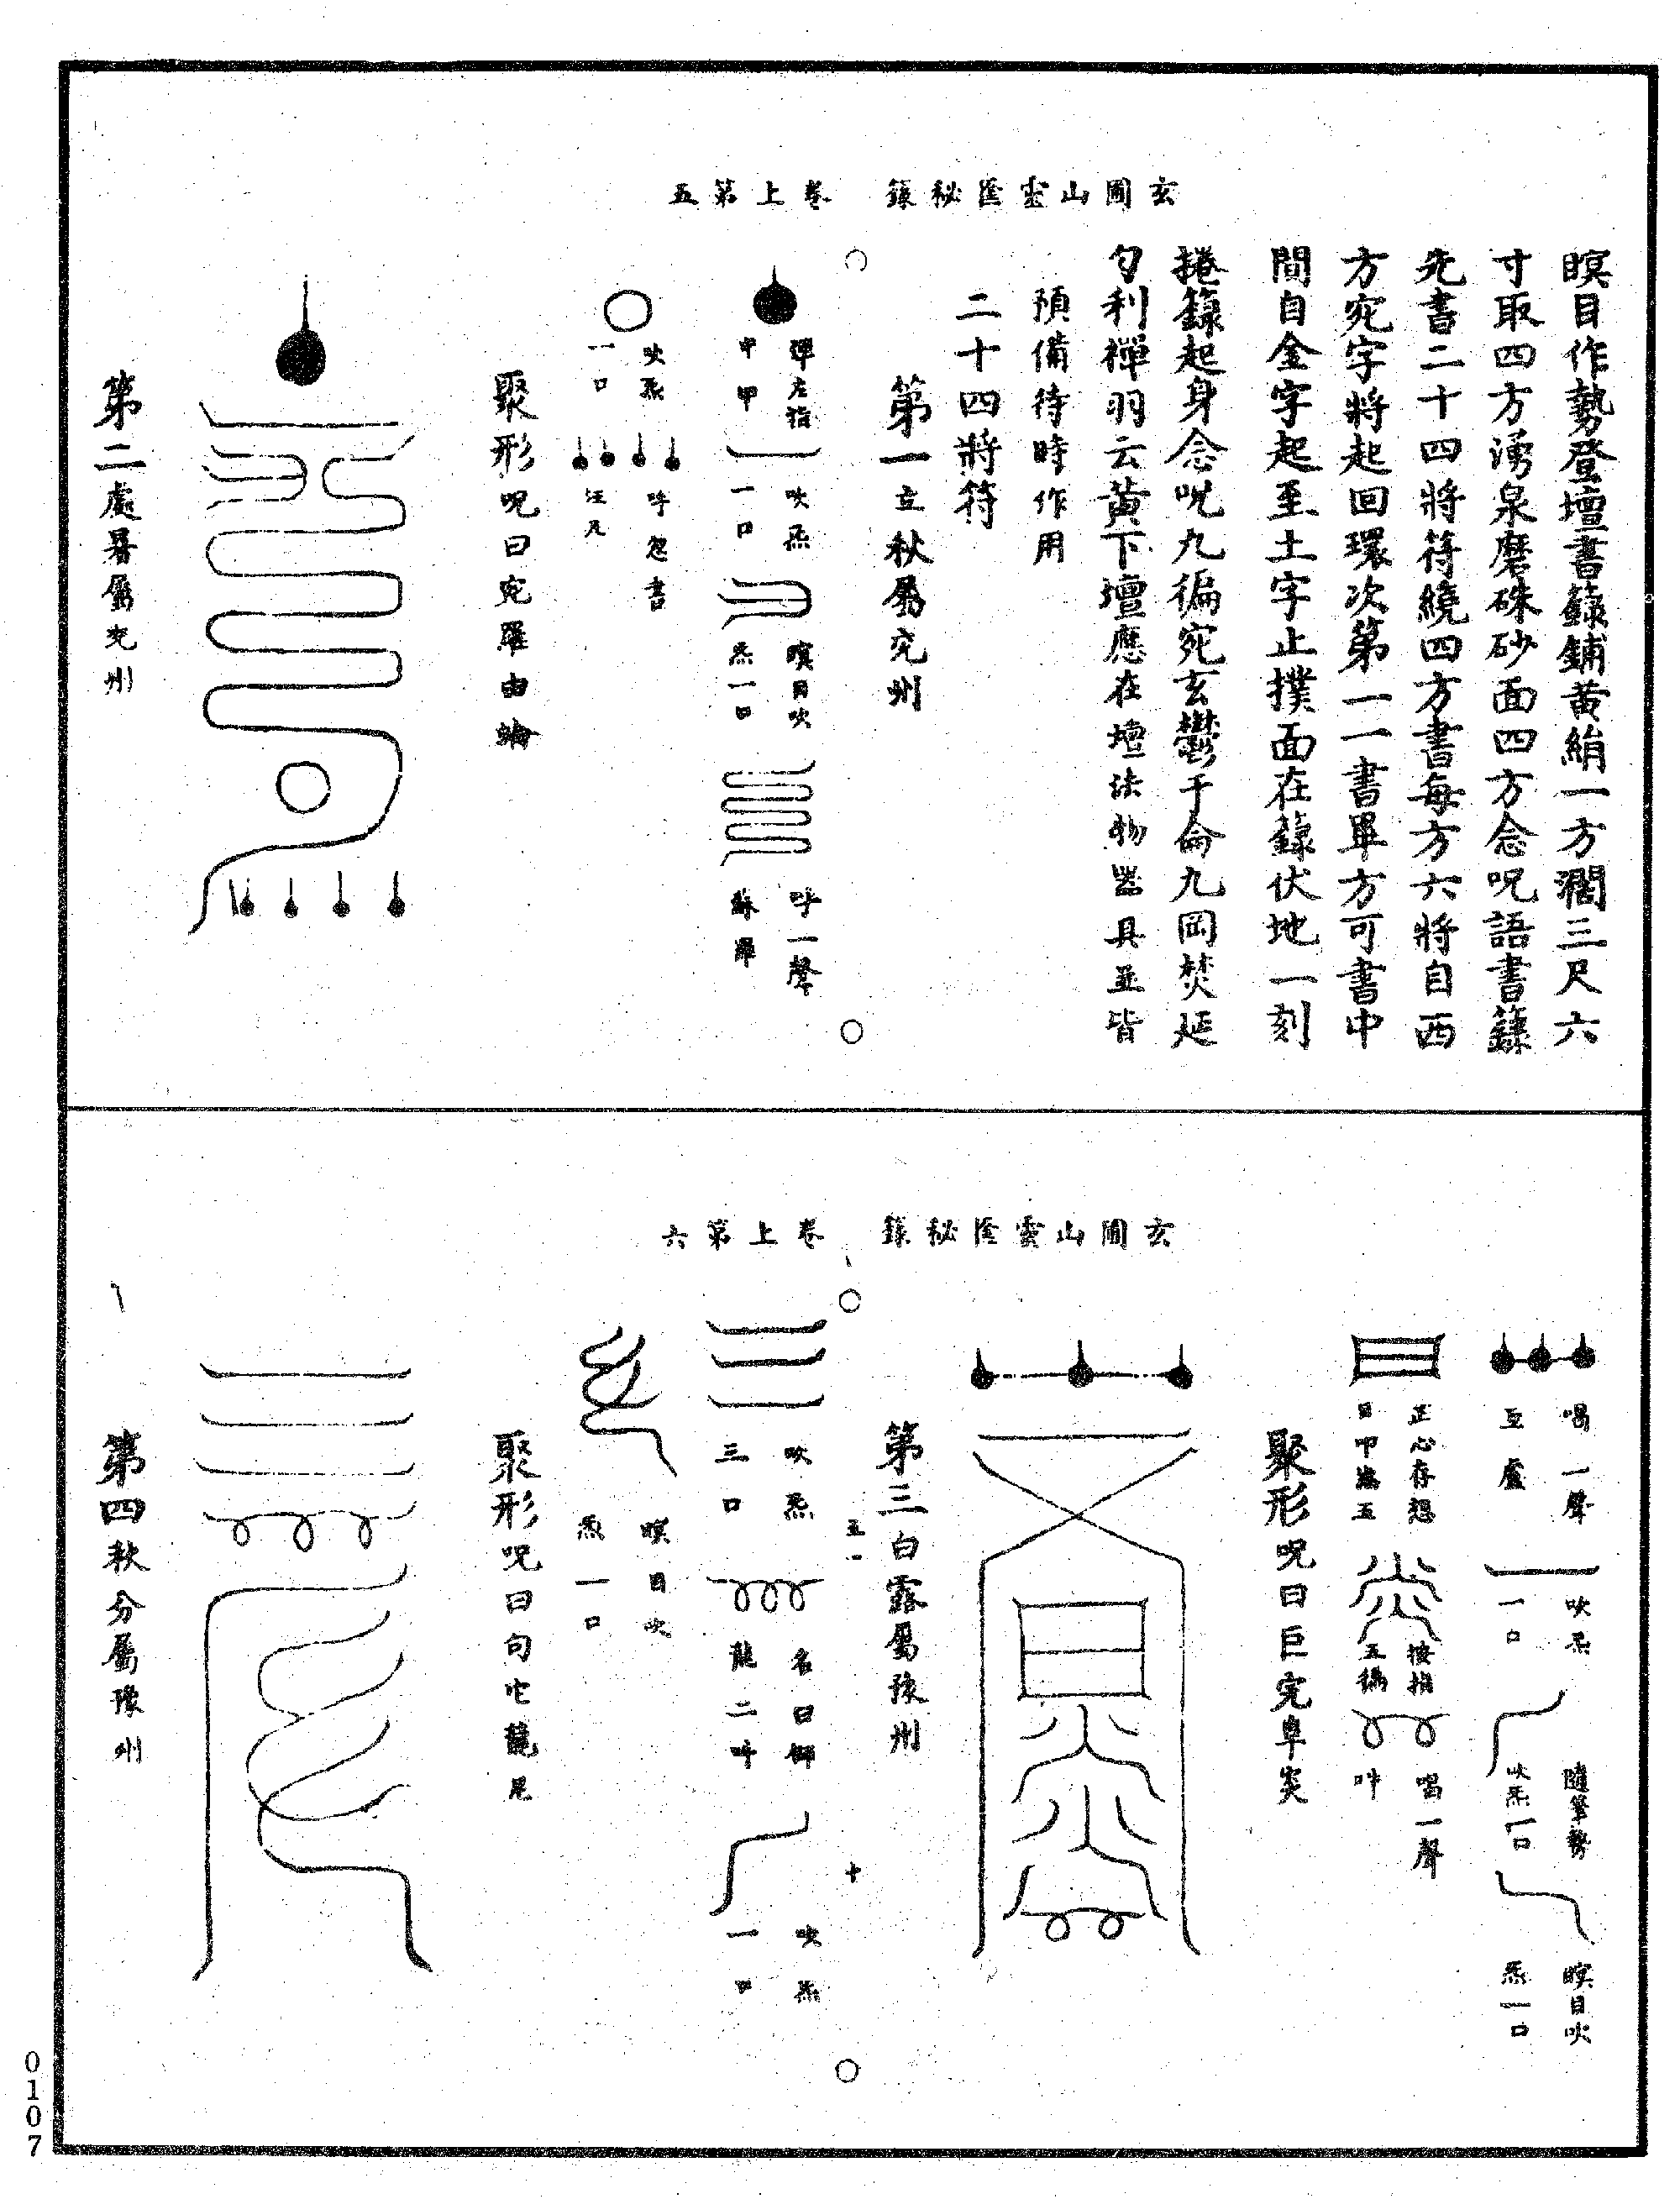 玄圃山靈匱秘籙　卷上第五
瞑目作勢登壇書籙鋪黃絹一方濶三尺六
寸取四方湧泉磨硃砂面四方念呪語書籙
先書二十四將符繞四方書每方六將自西
方宛字將起回環次第一一書畢方可書中
間自金字起至土字止撲面在籙伏地一刻
捲籙起身念呪九徧宛玄鬱于侖九岡焚延
勾利禪羽云黃下壇應在壇法物器具並皆
預備待時作用
二十四將符
第一立秋屬兗州
彈左指
中甲
吹炁
一口
瞑目吹
炁一口
呼一聲
蘇羅
吹炁
一口
呼忽書
聚形呪曰宛羅由
第二處暑屬兗州
玄圃山靈匱秘籙　卷上第六
喝一聲
亙盧
吹炁
一口
隨筆勢
吹炁一口
瞑目吹
炁一口
正心存想
按指
五徧
喝一聲
吽
聚形呪曰巨完阜炎
第三白露屬豫州
吹炁
三口
龍二吽
吹炁
一口
瞑目吹
炁一口
聚形呪曰句
第四秋分屬豫州
0107